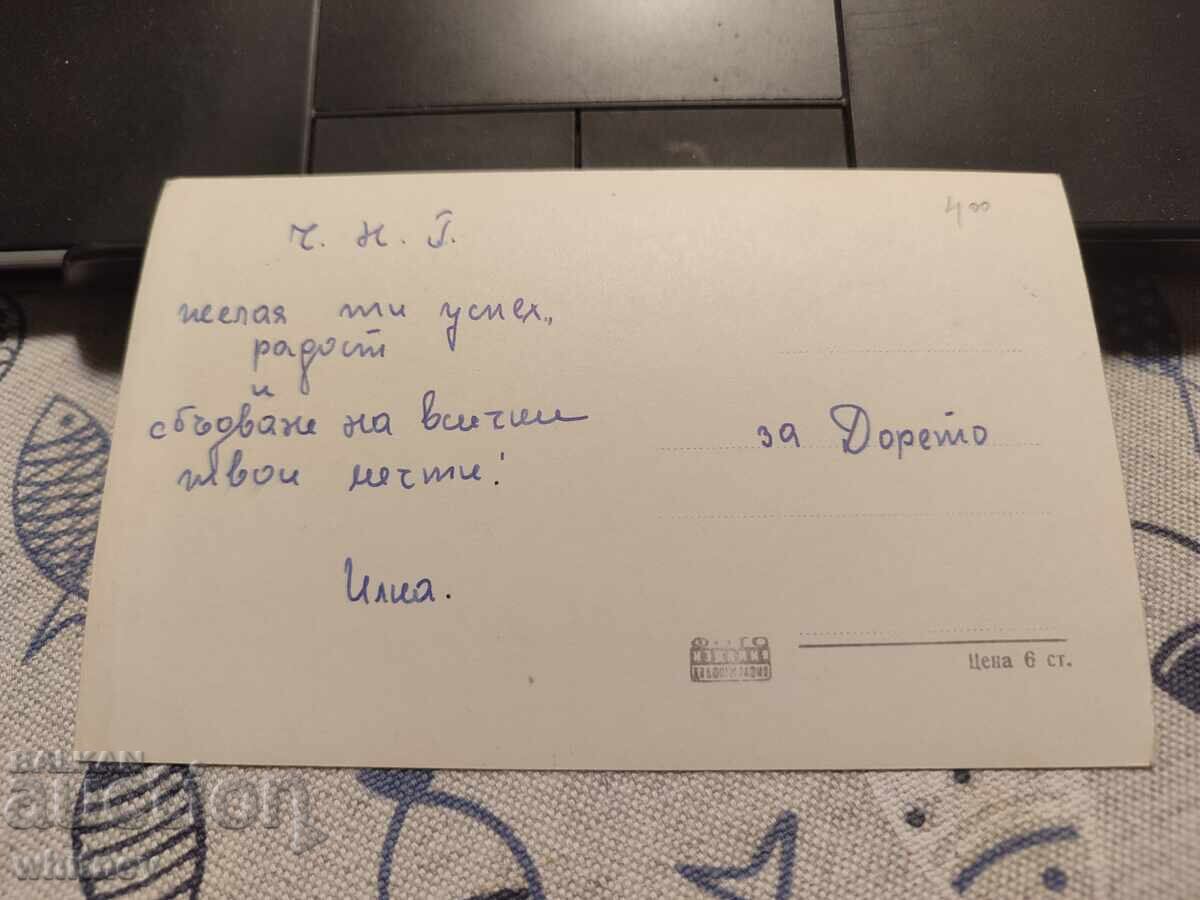 Ч. Н. Г.
желая ти успех,
радост
и
сбъдване на всички
твои мечти!
Илиа.
4 00
за Дорето
ФОТО
ИЗДАНИЯ
Цена 6 ст.
BALKAN
auction
whitney